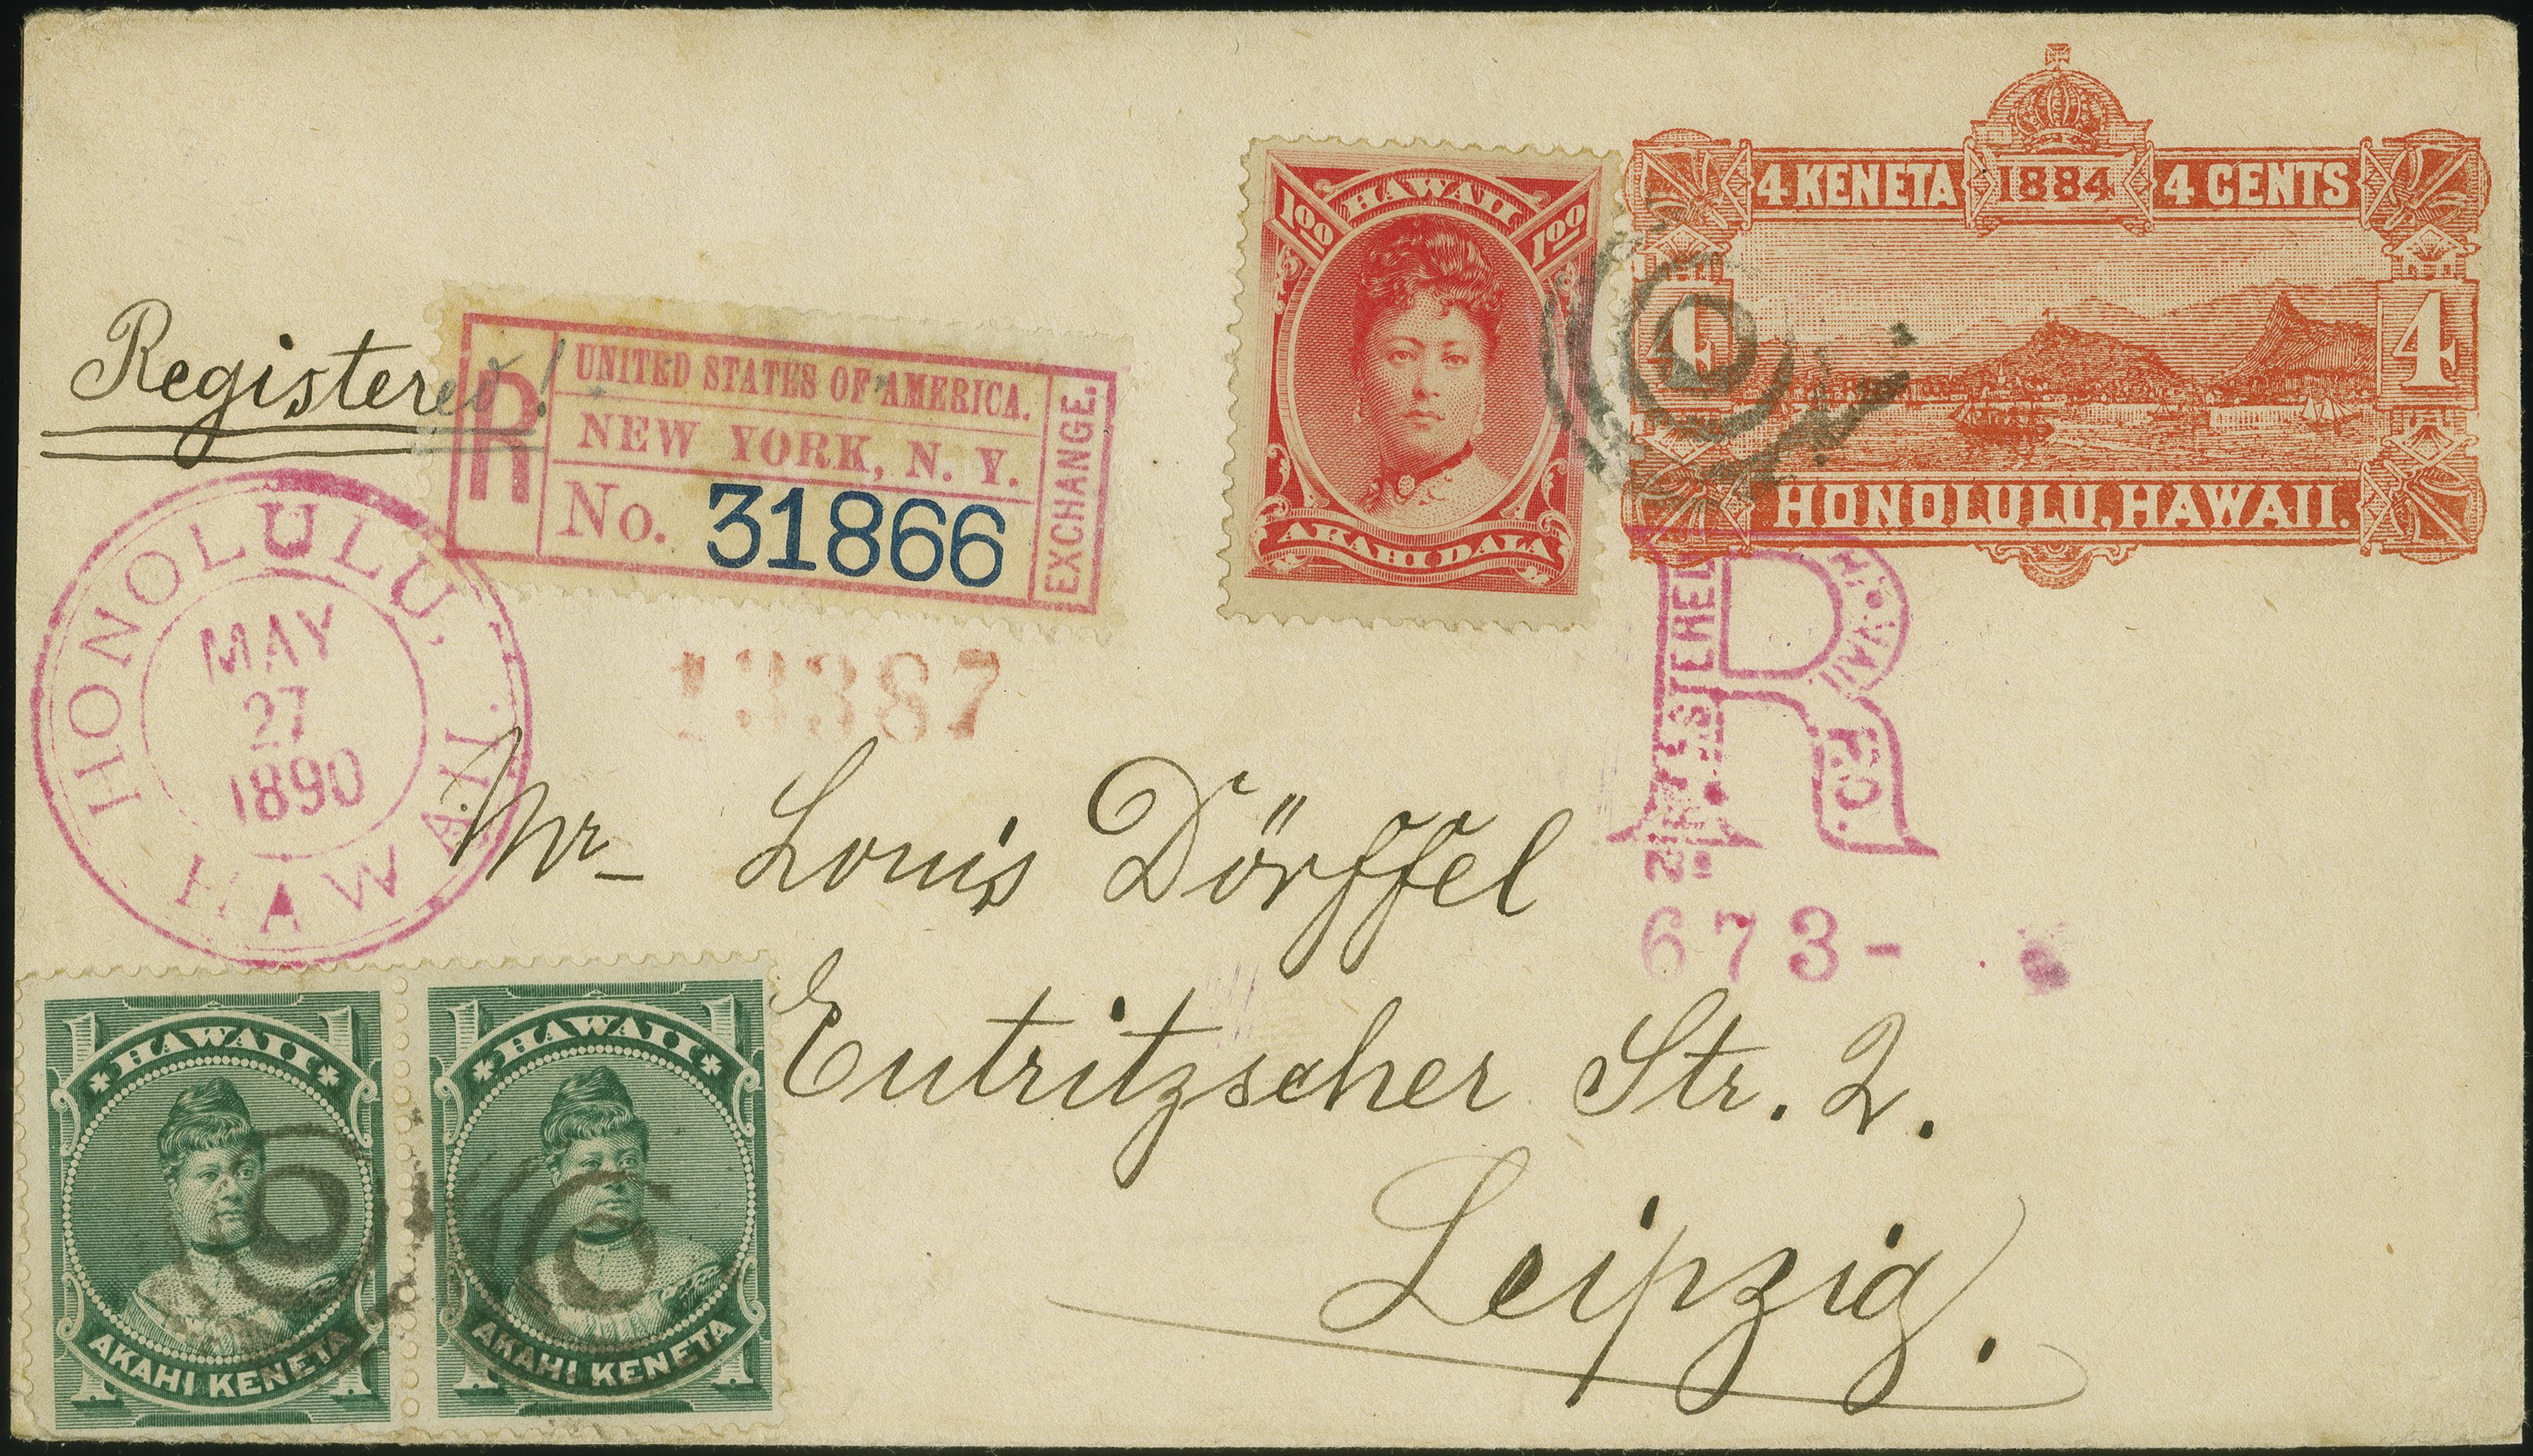 4 KENETA 1884 4 CENTS
4 4
HONOLULU, HAWAII.
HAWAII
1.00 1.00
AKAHI DALA
Registered!
R
UNITED STATES OF AMERICA.
NEW YORK, N. Y.
No. 31866
EXCHANGE.
HONOLULU,
MAY
27
1890
HAWAII.
13387
R
P.O.
No
673-
Mr Louis Dörffel
Eutritzscher Str. 2.
Leipzig.
1 HAWAII 1
AKAHI KENETA
1 1
1 HAWAII 1
AKAHI KENETA
1 1